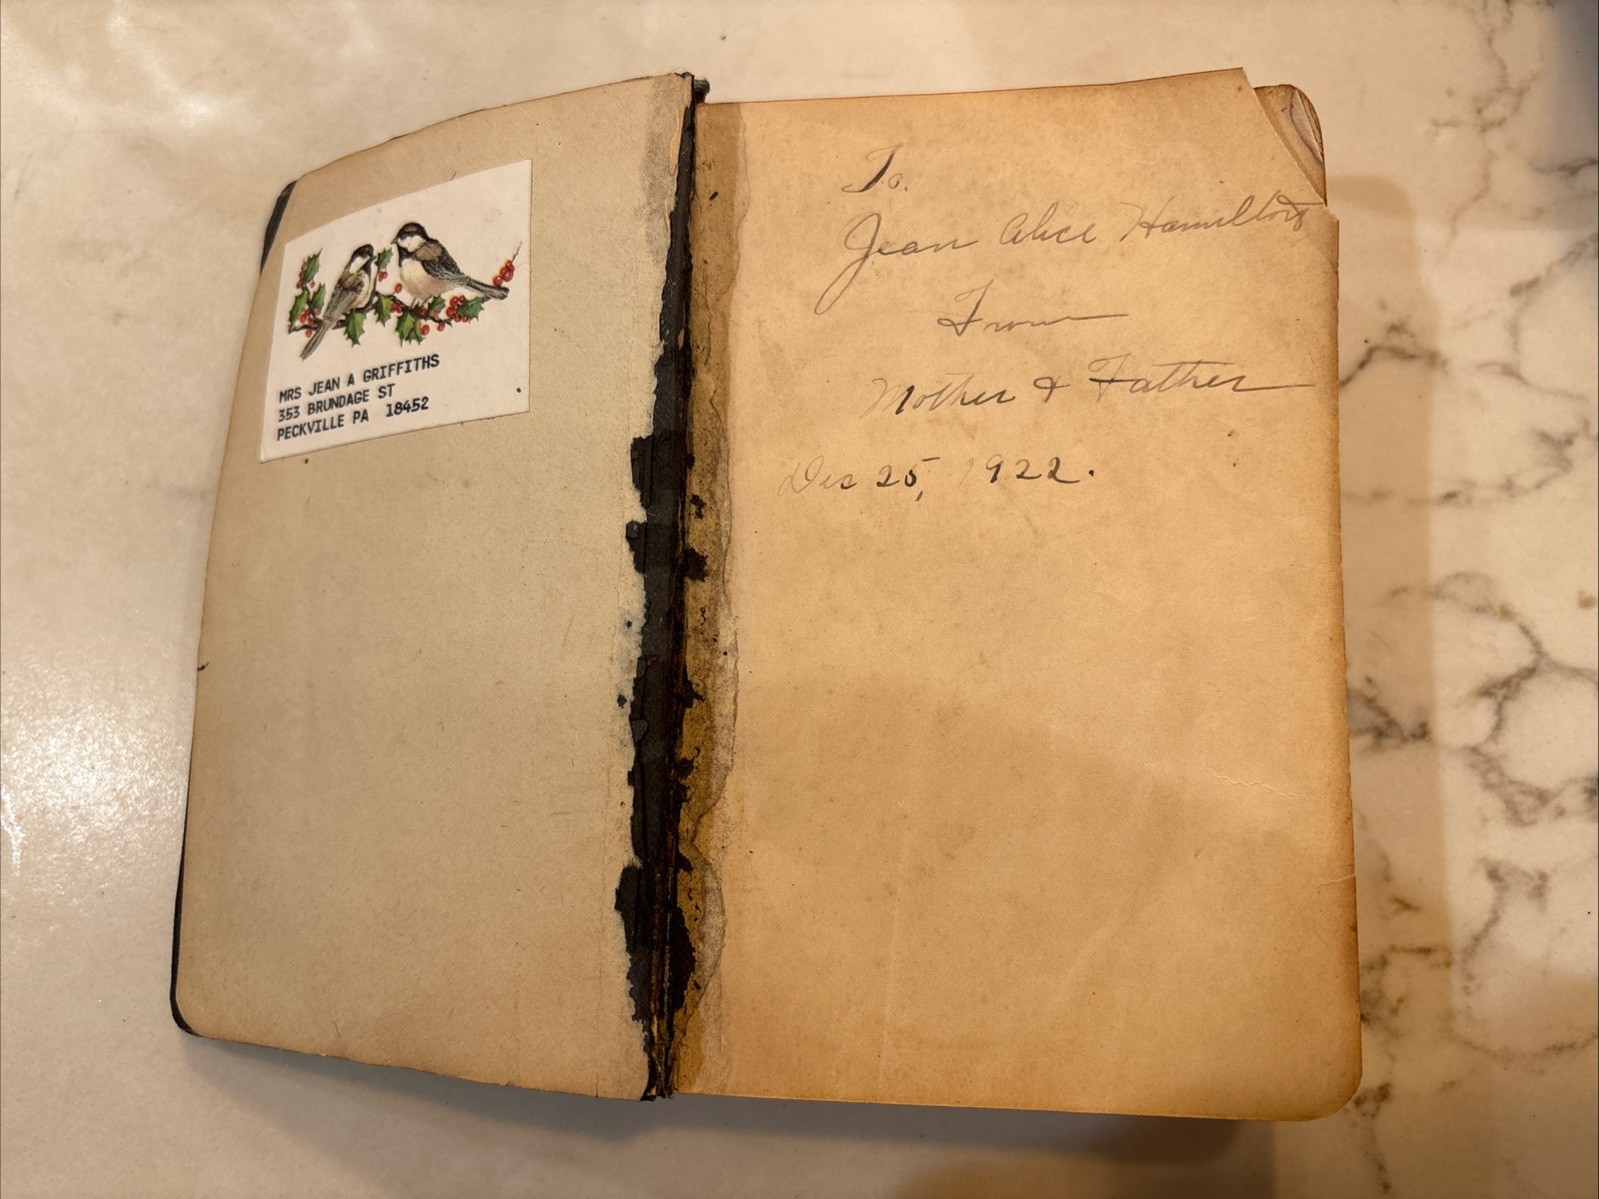 MRS JEAN A GRIFFITHS
353 BRUNDAGE ST
PECKVILLE PA 18452
To.
Jean Alice Hamilton
From
Mother & Father
Dec 25, 1922.